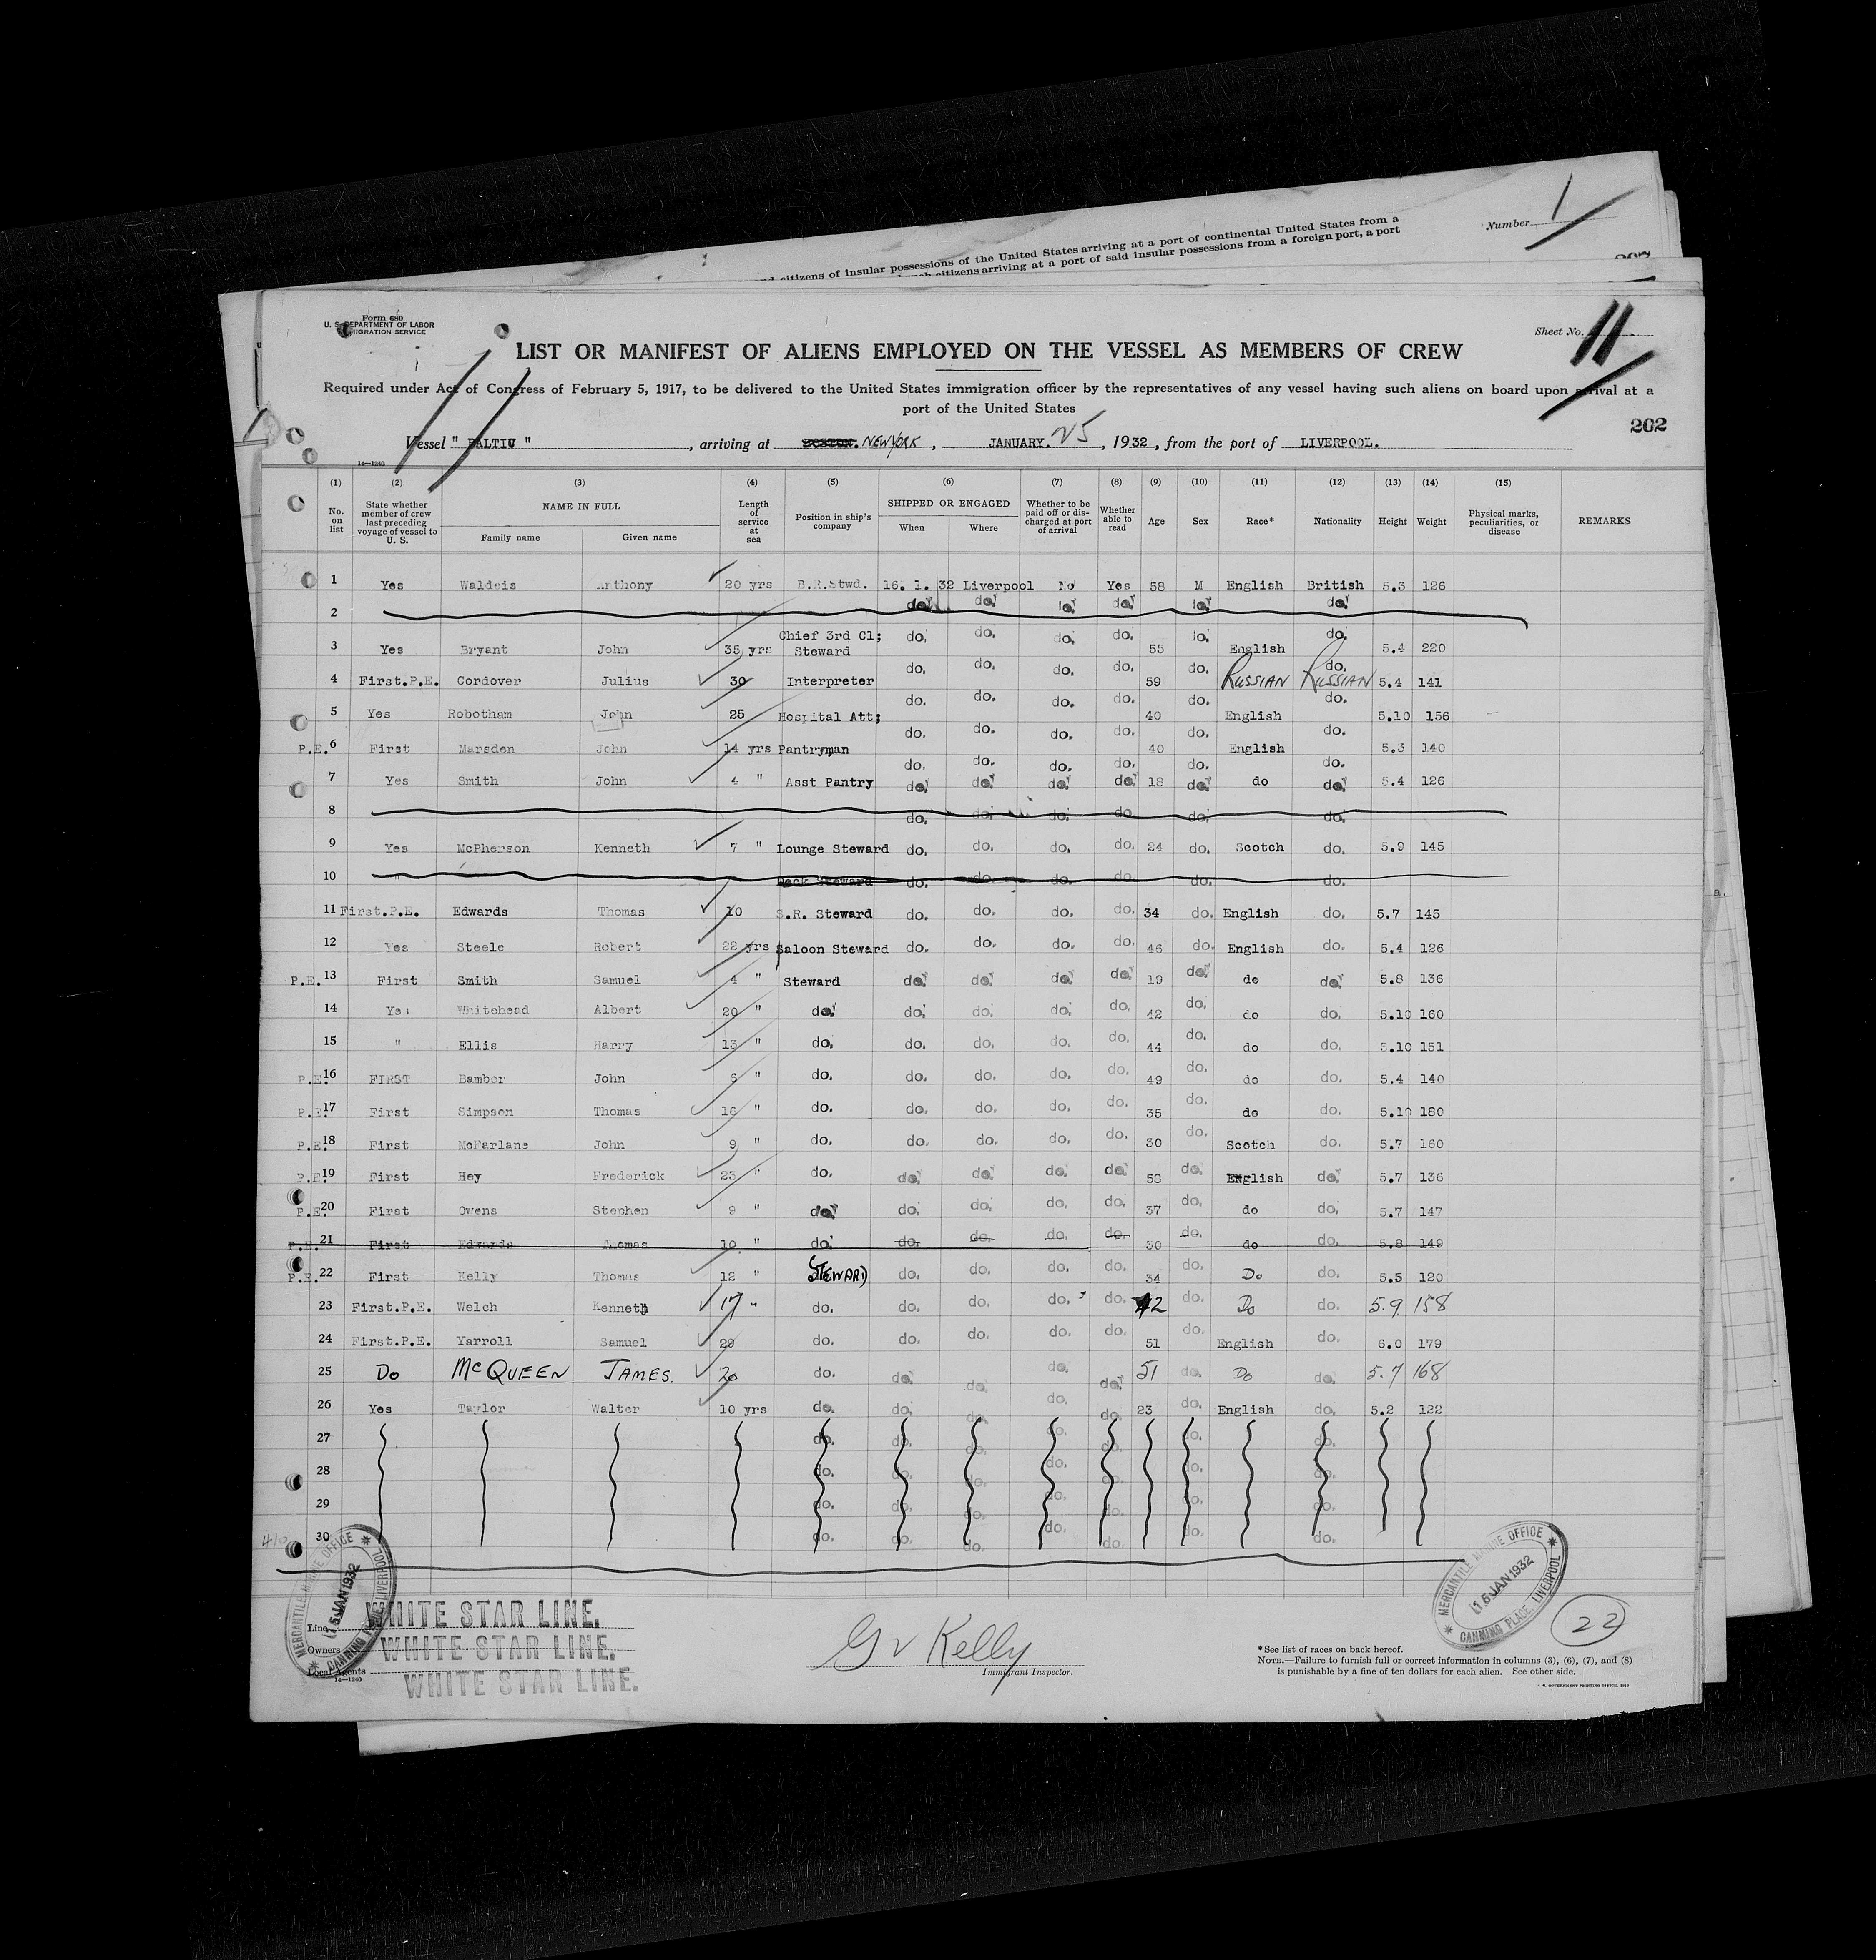 Number 1
citizens of insular possessions of the United States arriving at a port of continental United States from a
such citizens arriving at a port of said insular possessions from a foreign port, a port
Form 680
U. S. DEPARTMENT OF LABOR
IMMIGRATION SERVICE
Sheet No. 11
LIST OR MANIFEST OF ALIENS EMPLOYED ON THE VESSEL AS MEMBERS OF CREW
Required under Act of Congress of February 5, 1917, to be delivered to the United States immigration officer by the representatives of any vessel having such aliens on board upon arrival at a
port of the United States
202
Vessel " BALTIC ", arriving at BOSTON. NEW YORK, JANUARY. 25, 1932, from the port of LIVERPOOL.
14—1240
(1) (2) (3) (4) (5) (6) (7) (8) (9) (10) (11) (12) (13) (14) (15)
No. on list State whether member of crew last preceding voyage of vessel to U. S. NAME IN FULL Family name Given name Length of service at sea Position in ship's company SHIPPED OR ENGAGED When Where Whether to be paid off or discharged at port of arrival Whether able to read Age Sex Race* Nationality Height Weight Physical marks, peculiarities, or disease REMARKS
1 Yes Waldeis Anthony 20 yrs B.R.Stwd. 16. 1. 32 Liverpool No Yes 58 M English British 5.3 126
2 do. do. do. do. do. do.
3 Yes Bryant John 35 yrs Chief 3rd Cl; Steward do. do. do. do. 55 do. English do. 5.4 220
4 First.P.E. Cordover Julius 30 Interpreter do. do. do. do. 59 do. RUSSIAN do. RUSSIAN 5.4 141
5 Yes Robotham John 25 Hospital Att; do. do. do. do. 40 do. English do. 5.10 156
P.E. 6 First Marsden John 14 yrs Pantryman do. do. do. do. 40 do. English do. 5.3 140
7 Yes Smith John 4 " Asst Pantry do. do. do. do. 18 do. do do. 5.4 126
8 do. do. do. do. do. do.
9 Yes McPherson Kenneth 7 " Lounge Steward do. do. do. do. 24 do. Scotch do. 5.9 145
10 " Deck Steward do. do. do. do. do. do.
11 First.P.E. Edwards Thomas 10 S.R. Steward do. do. do. do. 34 do. English do. 5.7 145
12 Yes Steele Robert 22 yrs Saloon Steward do. do. do. do. 46 do. English do. 5.4 126
P.E. 13 First Smith Samuel 4 " Steward do. do. do. do. 19 do. do do. 5.8 136
14 Yes Whitehead Albert 20 " do. do. do. do. do. 42 do. do do. 5.10 160
15 " Ellis Harry 13 " do. do. do. do. do. 44 do. do do. 5.10 151
P.E. 16 FIRST Bamber John 6 " do. do. do. do. do. 49 do. do do. 5.4 140
P.E. 17 First Simpson Thomas 16 " do. do. do. do. do. 35 do. do do. 5.10 180
P.E. 18 First McFarlane John 9 " do. do. do. do. do. 30 do. Scotch do. 5.7 160
P.E. 19 First Hey Frederick 23 " do. do. do. do. do. do. English do. 5.7 136
P.E. 20 First Owens Stephen 9 " do. do. do. do. do. 37 do. do do. 5.7 147
P.E. 21 First Edwards Thomas 10 " do. do. do. do. do. 30 do. do do. 5.8 149
P.E. 22 First Kelly Thomas 12 " STEWARD do. do. do. do. 34 do. Do do. 5.5 120
23 First.P.E. Welch Kenneth 17 " do. do. do. do. do. 42 do. Do do. 5.9 158
24 First.P.E. Yarroll Samuel 29 do. do. do. do. do. 51 do. English do. 6.0 179
25 Do McQUEEN JAMES. 20 do. do. do. do. do. 51 do. Do do. 5.7 168
26 Yes Taylor Walter 10 yrs do. do. do. do. do. 23 do. English do. 5.2 122
27 do. do. do. do. do. do. do.
28 do. do. do. do. do. do. do.
29 do. do. do. do. do. do. do.
30 do. do. do. do. do. do. do.
MERCANTILE MARINE OFFICE
15 JAN 1932
CANNING PLACE, LIVERPOOL
Line WHITE STAR LINE.
Owners WHITE STAR LINE.
Local Agents WHITE STAR LINE.
14—1240
G v Kelly
Immigrant Inspector.
MERCANTILE MARINE OFFICE
15 JAN 1932
CANNING PLACE, LIVERPOOL
22
*See list of races on back hereof.
NOTE.—Failure to furnish full or correct information in columns (3), (6), (7), and (8)
is punishable by a fine of ten dollars for each alien. See other side.